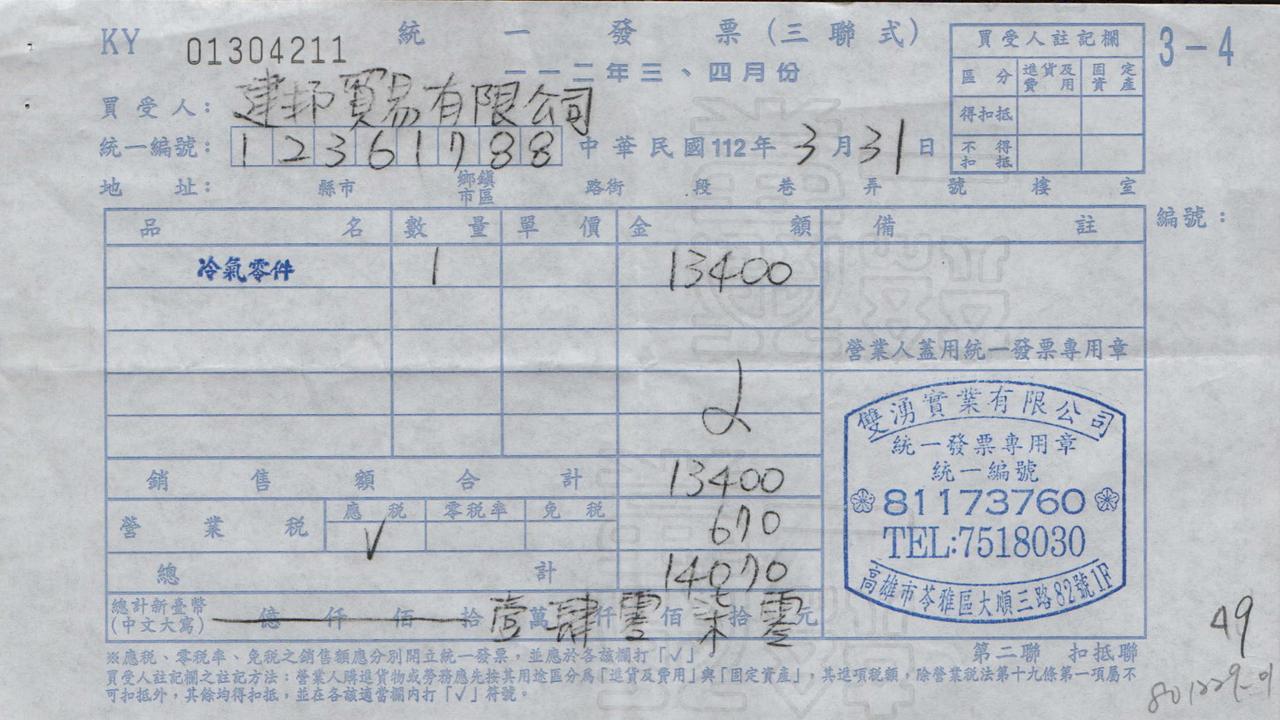 KY 01304211 統一發票(三聯式) 3-4
一一二年三、四月份
買受人註記欄
區分 進貨及費用 固定資產
得扣抵
不得扣抵
買受人: 建邦貿易有限公司
統一編號: 12361788 中華民國112年3月31日
地址: 縣市 鄉鎮市區 路街 段 巷 弄 號 樓 室
編號:
品名 數量 單價 金額 備註
冷氣零件 1 13400
營業人蓋用統一發票專用章
銷售額合計 13400
營業稅 應稅 V 零稅率 免稅 670
總計 14070
總計新臺幣(中文大寫) 億仟佰拾壹萬肆仟零佰柒拾零元
雙湧實業有限公司
統一發票專用章
統一編號
81173760
TEL:7518030
高雄市苓雅區大順三路82號1F
※應稅、零稅率、免稅之銷售額應分別開立統一發票,並應於各該欄打「√」
第二聯 扣抵聯
買受人註記欄之註記方法:營業人購進貨物或勞務應先按其用途區分為「進貨及費用」與「固定資產」,其進項稅額,除營業稅法第十九條第一項屬不
可扣抵外,其餘均得扣抵,並在各該適當欄內打「√」符號。
49